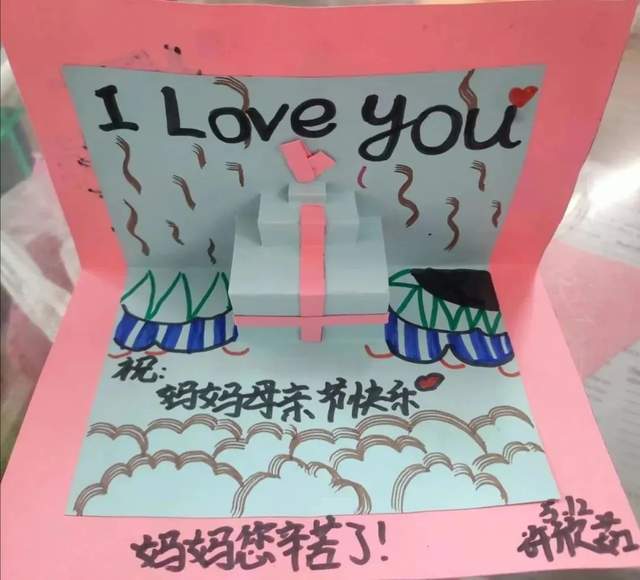 I Love you
祝:
妈妈母亲节快乐
妈妈您辛苦了!
5.12
许欣